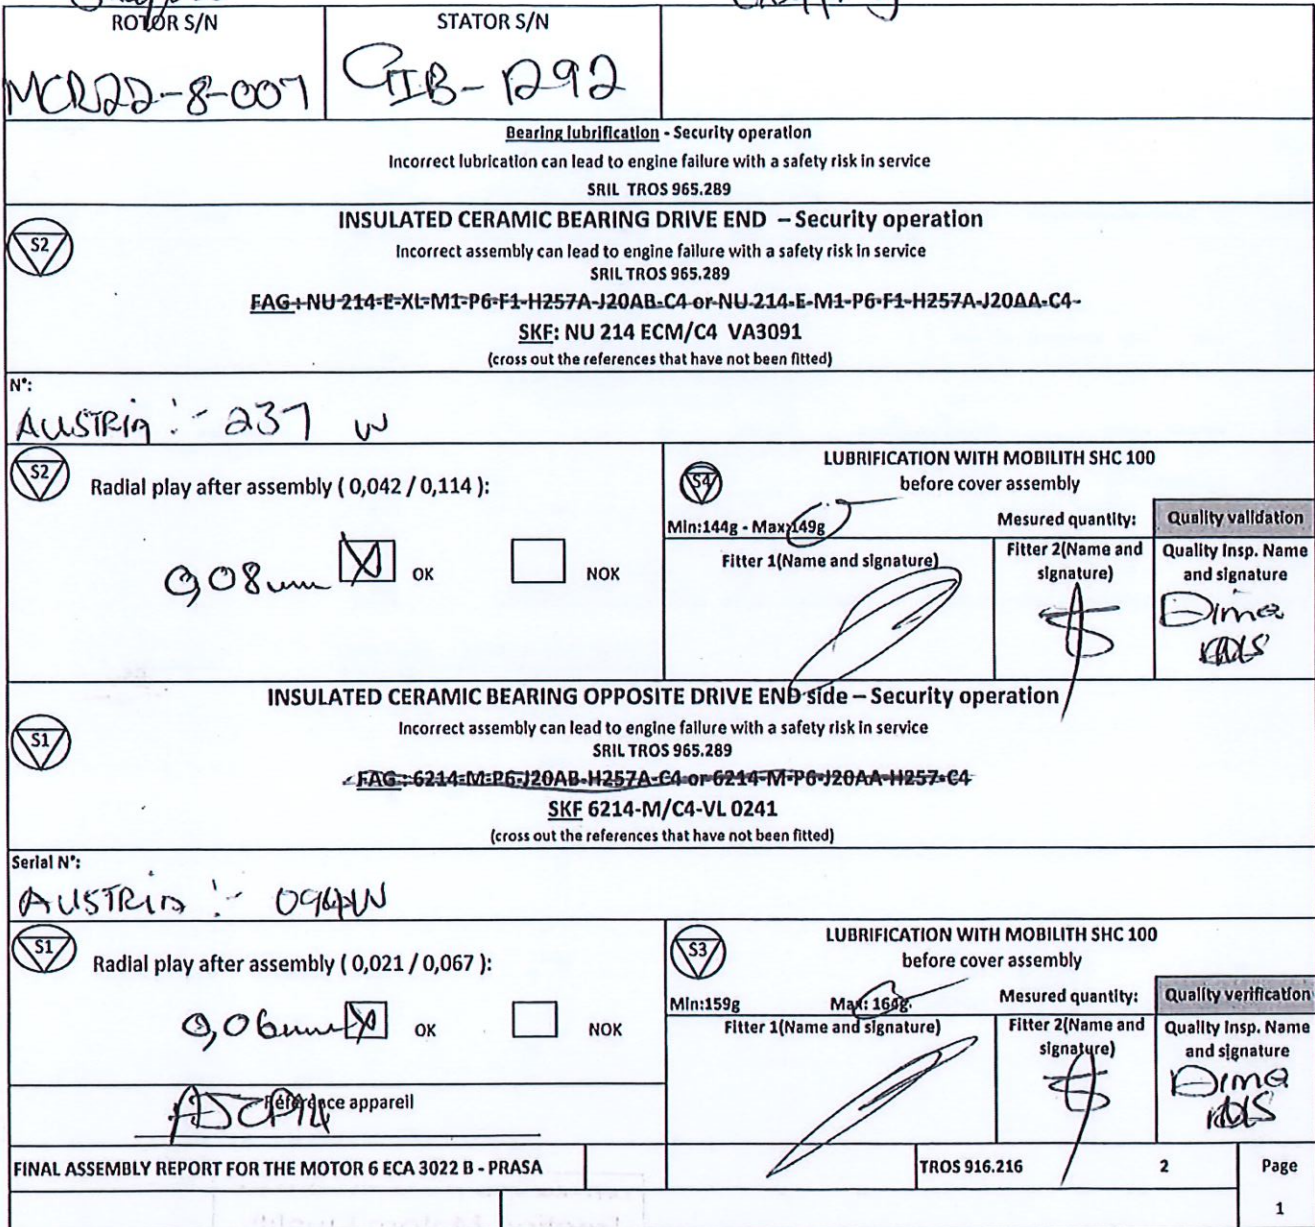 ROTOR S/N
STATOR S/N
MCR22-8-007
GIB-1292
Bearing lubrification - Security operation
Incorrect lubrication can lead to engine failure with a safety risk in service
SRIL TROS 965.289
S2
INSULATED CERAMIC BEARING DRIVE END – Security operation
Incorrect assembly can lead to engine failure with a safety risk in service
SRIL TROS 965.289
FAG : NU-214-E-XL-M1-P6-F1-H257A-J20AB-C4 or NU-214-E-M1-P6-F1-H257A-J20AA-C4-
SKF: NU 214 ECM/C4 VA3091
(cross out the references that have not been fitted)
N°:
AUSTRIA :- 237 W
S2
Radial play after assembly ( 0,042 / 0,114 ):
0,08mm X OK NOK
S4
LUBRIFICATION WITH MOBILITH SHC 100
before cover assembly
Min:144g - Max:149g
Mesured quantity:
Quality validation
Fitter 1(Name and signature)
Fitter 2(Name and signature)
Quality Insp. Name and signature
Dima
INSULATED CERAMIC BEARING OPPOSITE DRIVE END side – Security operation
S1
Incorrect assembly can lead to engine failure with a safety risk in service
SRIL TROS 965.289
FAG : 6214-M-P6-J20AB-H257A-C4 or 6214-M-P6-J20AA-H257-C4
SKF 6214-M/C4-VL 0241
(cross out the references that have not been fitted)
Serial N°:
AUSTRIA :- 094W
S1
Radial play after assembly ( 0,021 / 0,067 ):
0,06mm X OK NOK
Réference appareil
S3
LUBRIFICATION WITH MOBILITH SHC 100
before cover assembly
Min:159g Max: 164g
Mesured quantity:
Quality verification
Fitter 1(Name and signature)
Fitter 2(Name and signature)
Quality Insp. Name and signature
Dima
FINAL ASSEMBLY REPORT FOR THE MOTOR 6 ECA 3022 B - PRASA
TROS 916.216
2
Page
1